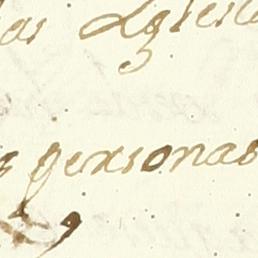 las Yglesia
personas